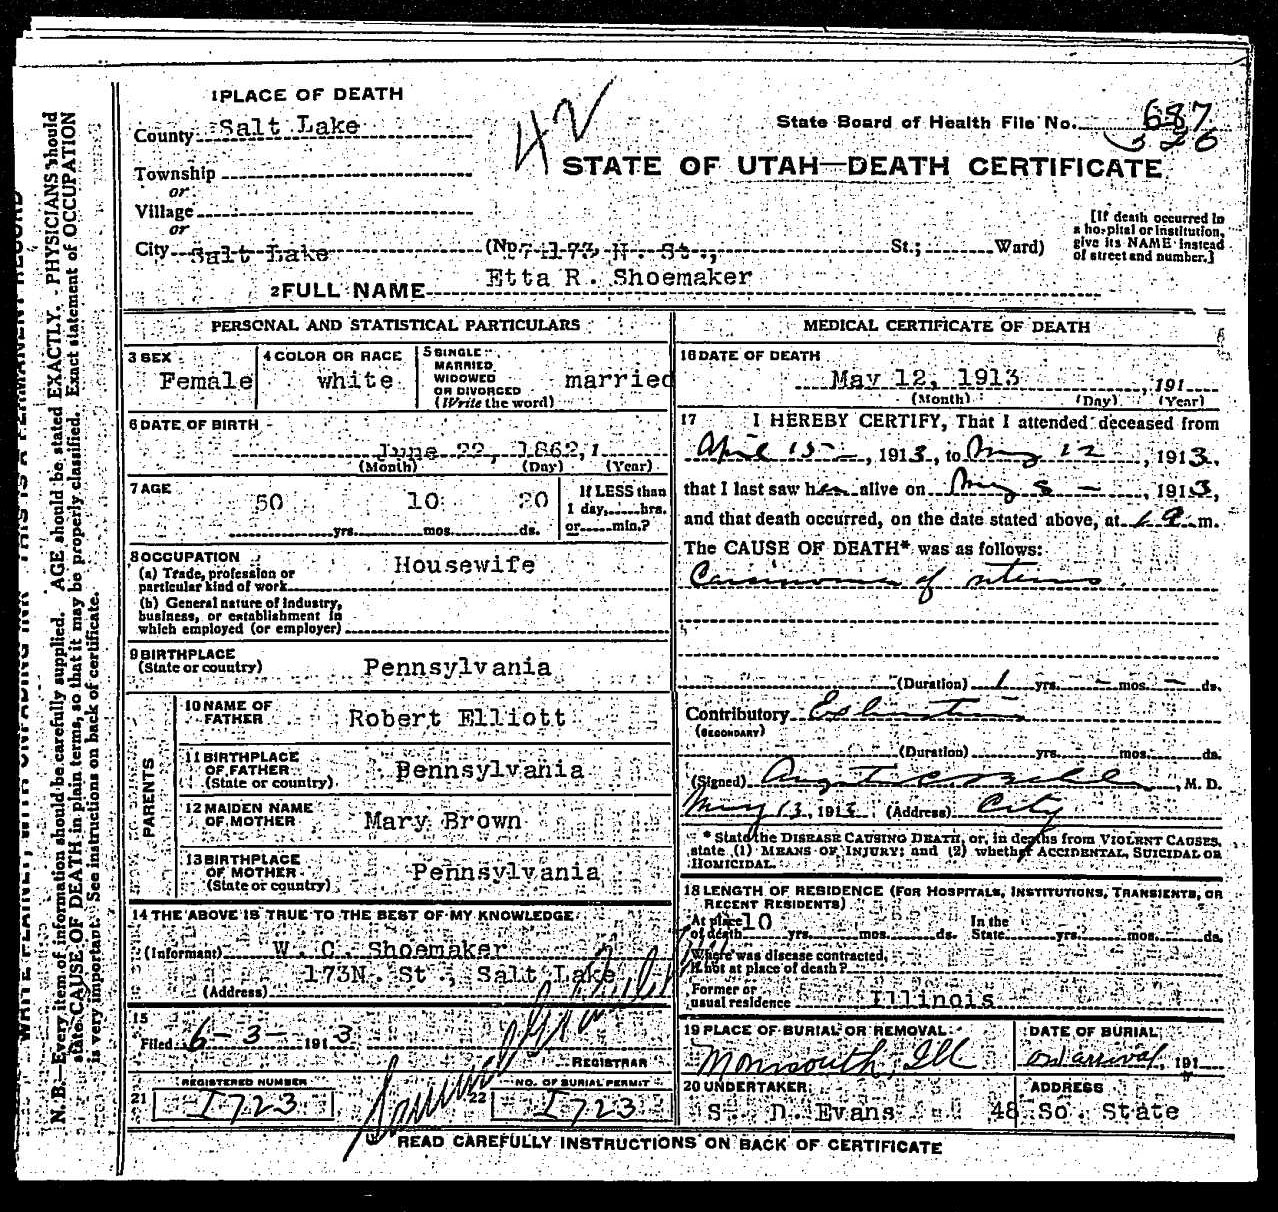 1 PLACE OF DEATH
County Salt Lake
Township
or
Village
or
City Salt Lake (No. 173 N. St., St.; Ward)
42
State Board of Health File No. 687
STATE OF UTAH—DEATH CERTIFICATE
[If death occurred in
a hospital or institution,
give its NAME instead
of street and number.]
2 FULL NAME Etta R. Shoemaker
PERSONAL AND STATISTICAL PARTICULARS
3 SEX
Female
4 COLOR OR RACE
white
5 SINGLE
MARRIED
WIDOWED
OR DIVORCED
(Write the word)
married
6 DATE OF BIRTH
June 22, 1862, 1
(Month) (Day) (Year)
7 AGE
50 yrs. 10 mos. 20 ds.
If LESS than
1 day, hrs.
or min.?
8 OCCUPATION
(a) Trade, profession or
particular kind of work Housewife
(b) General nature of industry,
business, or establishment in
which employed (or employer)
9 BIRTHPLACE
(State or country) Pennsylvania
PARENTS
10 NAME OF
FATHER Robert Elliott
11 BIRTHPLACE
OF FATHER
(State or country) Pennsylvania
12 MAIDEN NAME
OF MOTHER Mary Brown
13 BIRTHPLACE
OF MOTHER
(State or country) Pennsylvania
14 THE ABOVE IS TRUE TO THE BEST OF MY KNOWLEDGE
(Informant) W. C. Shoemaker
(Address) 173N. St., Salt Lake
15
Filed 6-3- 1913
REGISTRAR
21 REGISTERED NUMBER
I723
22 NO. OF BURIAL PERMIT
I723
MEDICAL CERTIFICATE OF DEATH
16 DATE OF DEATH
May 12, 1913, 191
(Month) (Day) (Year)
17 I HEREBY CERTIFY, That I attended deceased from
April 15, 1913, to May 12, 1913,
that I last saw her alive on May 8, 1913,
and that death occurred, on the date stated above, at m.
The CAUSE OF DEATH* was as follows:
Carcinoma of uterus.
(Duration) 1 yrs. - mos. - ds.
Contributory Exhaustion
(SECONDARY)
(Duration) yrs. mos. ds.
(Signed) M. D.
May 13, 1913 (Address) City
* State the DISEASE CAUSING DEATH, or, in deaths from VIOLENT CAUSES,
state (1) MEANS OF INJURY; and (2) whether ACCIDENTAL, SUICIDAL OR
HOMICIDAL.
18 LENGTH OF RESIDENCE (FOR HOSPITALS, INSTITUTIONS, TRANSIENTS, OR
RECENT RESIDENTS)
At place
of death 10 yrs. mos. ds.
In the
State yrs. mos. ds.
Where was disease contracted,
If not at place of death?
Former or
usual residence Illinois
19 PLACE OF BURIAL OR REMOVAL
Monmouth, Ill
DATE OF BURIAL
on arrival, 191
20 UNDERTAKER
S. D. Evans
ADDRESS
48 So. State
READ CAREFULLY INSTRUCTIONS ON BACK OF CERTIFICATE
WRITE PLAINLY, WITH UNFADING INK—THIS IS A PERMANENT RECORD
N. B.—Every item of information should be carefully supplied. AGE should be stated EXACTLY. PHYSICIANS should
state CAUSE OF DEATH in plain terms, so that it may be properly classified. Exact statement of OCCUPATION
is very important. See instructions on back of certificate.